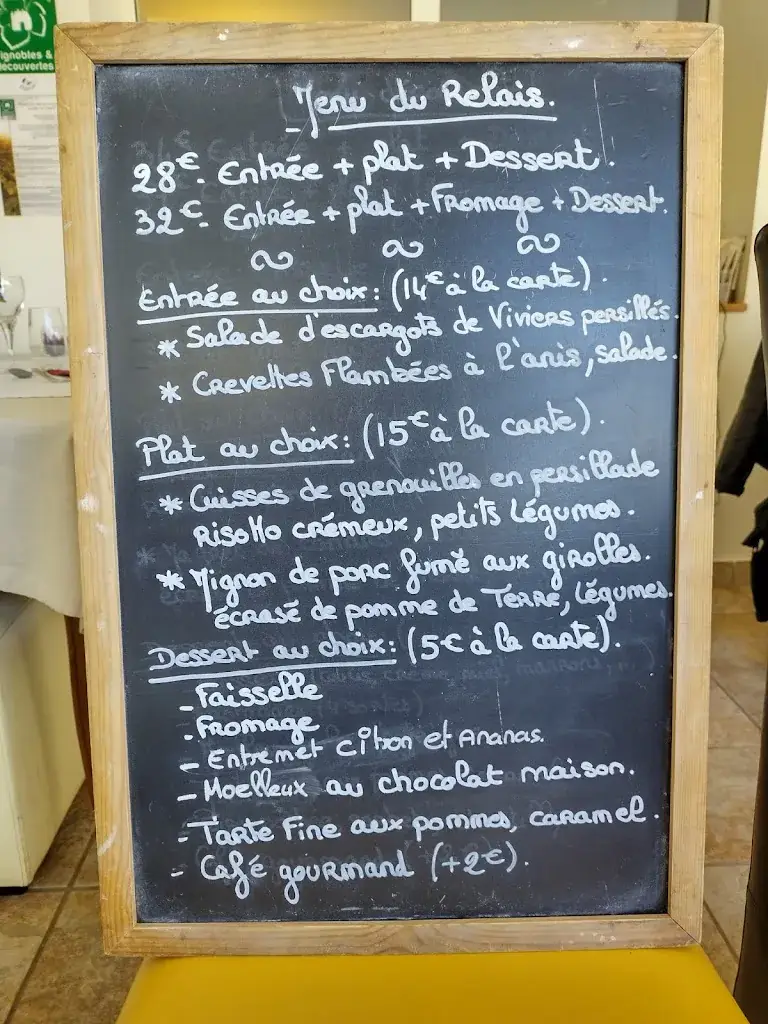 ignobles &
découvertes
Menu du Relais.
28€. Entrée + plat + Dessert.
32€. Entrée + plat + Fromage + Dessert.
Entrée au choix: (14€ à la carte).
* Salade d'escargots de Viviers persillés.
* Crevettes Flambées à l'anis, salade.
Plat au choix: (15€ à la carte).
* Cuisses de grenouilles en persillade
Risotto crémeux, petits légumes.
* Mignon de porc fumé aux girolles.
écrasé de pomme de Terre, légumes.
Dessert au choix: (5€ à la carte).
- Faisselle
- Fromage
- Entremet Citron et Ananas.
- Moelleux au chocolat maison.
- Tarte Fine aux pommes, caramel.
- Café gourmand (+2€).